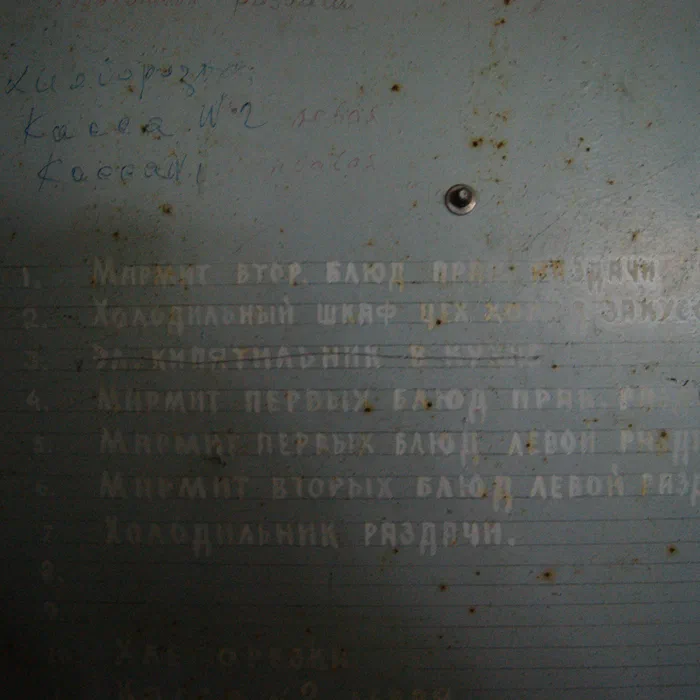 раздачи
Хлеборезка
Касса №2 левая
Касса №1 правая
1. Мармит втор. блюд прав. раздачи
2. Холодильный шкаф цех холод. закус
3. Эл. кипятильник в кухне
4. Мармит первых блюд прав. разд
5. Мармит первых блюд левой разд
6. Мармит вторых блюд левой разд
7. Холодильник раздачи.
8.
9.
10. Хлеборезки
Касса №2 левая